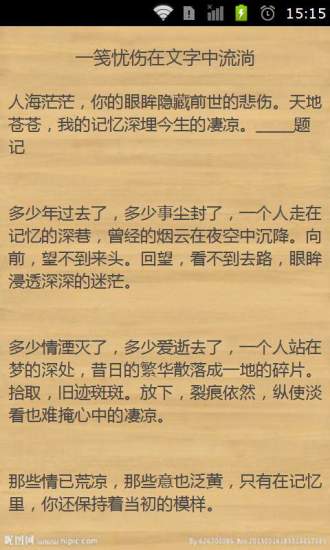 15:15
一笺忧伤在文字中流淌
人海茫茫，你的眼眸隐藏前世的悲伤。天地
苍苍，我的记忆深埋今生的凄凉。_____题
记
多少年过去了，多少事尘封了，一个人走在
记忆的深巷，曾经的烟云在夜空中沉降。向
前，望不到来头。回望，看不到去路，眼眸
浸透深深的迷茫。
多少情湮灭了，多少爱逝去了，一个人站在
梦的深处，昔日的繁华散落成一地的碎片。
拾取，旧迹斑斑。放下，裂痕依然，纵使淡
看也难掩心中的凄凉。
那些情已荒凉，那些意也泛黄，只有在记忆
里，你还保持着当初的模样。
昵图网